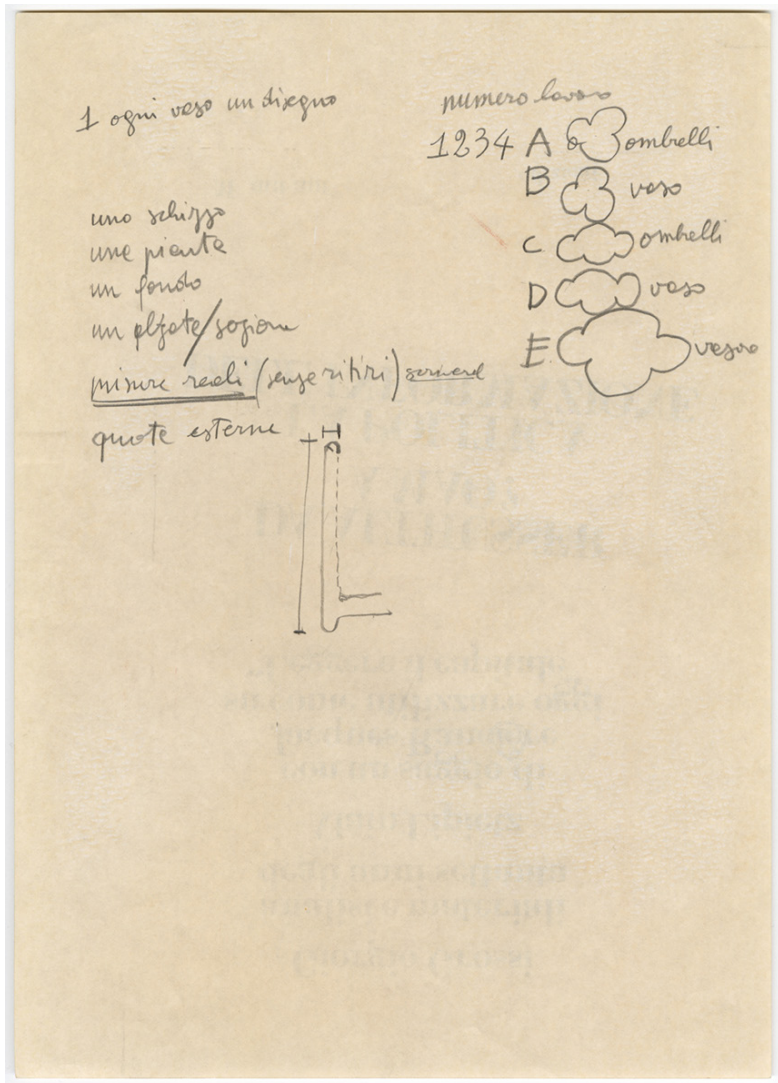 1 ogni vaso un disegno
uno schizzo
una pianta
un fondo
un alzato/sezione
misure reali (senza ritiri)
quote esterne
numero lavoro
1234 A ombrelli
B vaso
C ombrelli
D vaso
E vaso